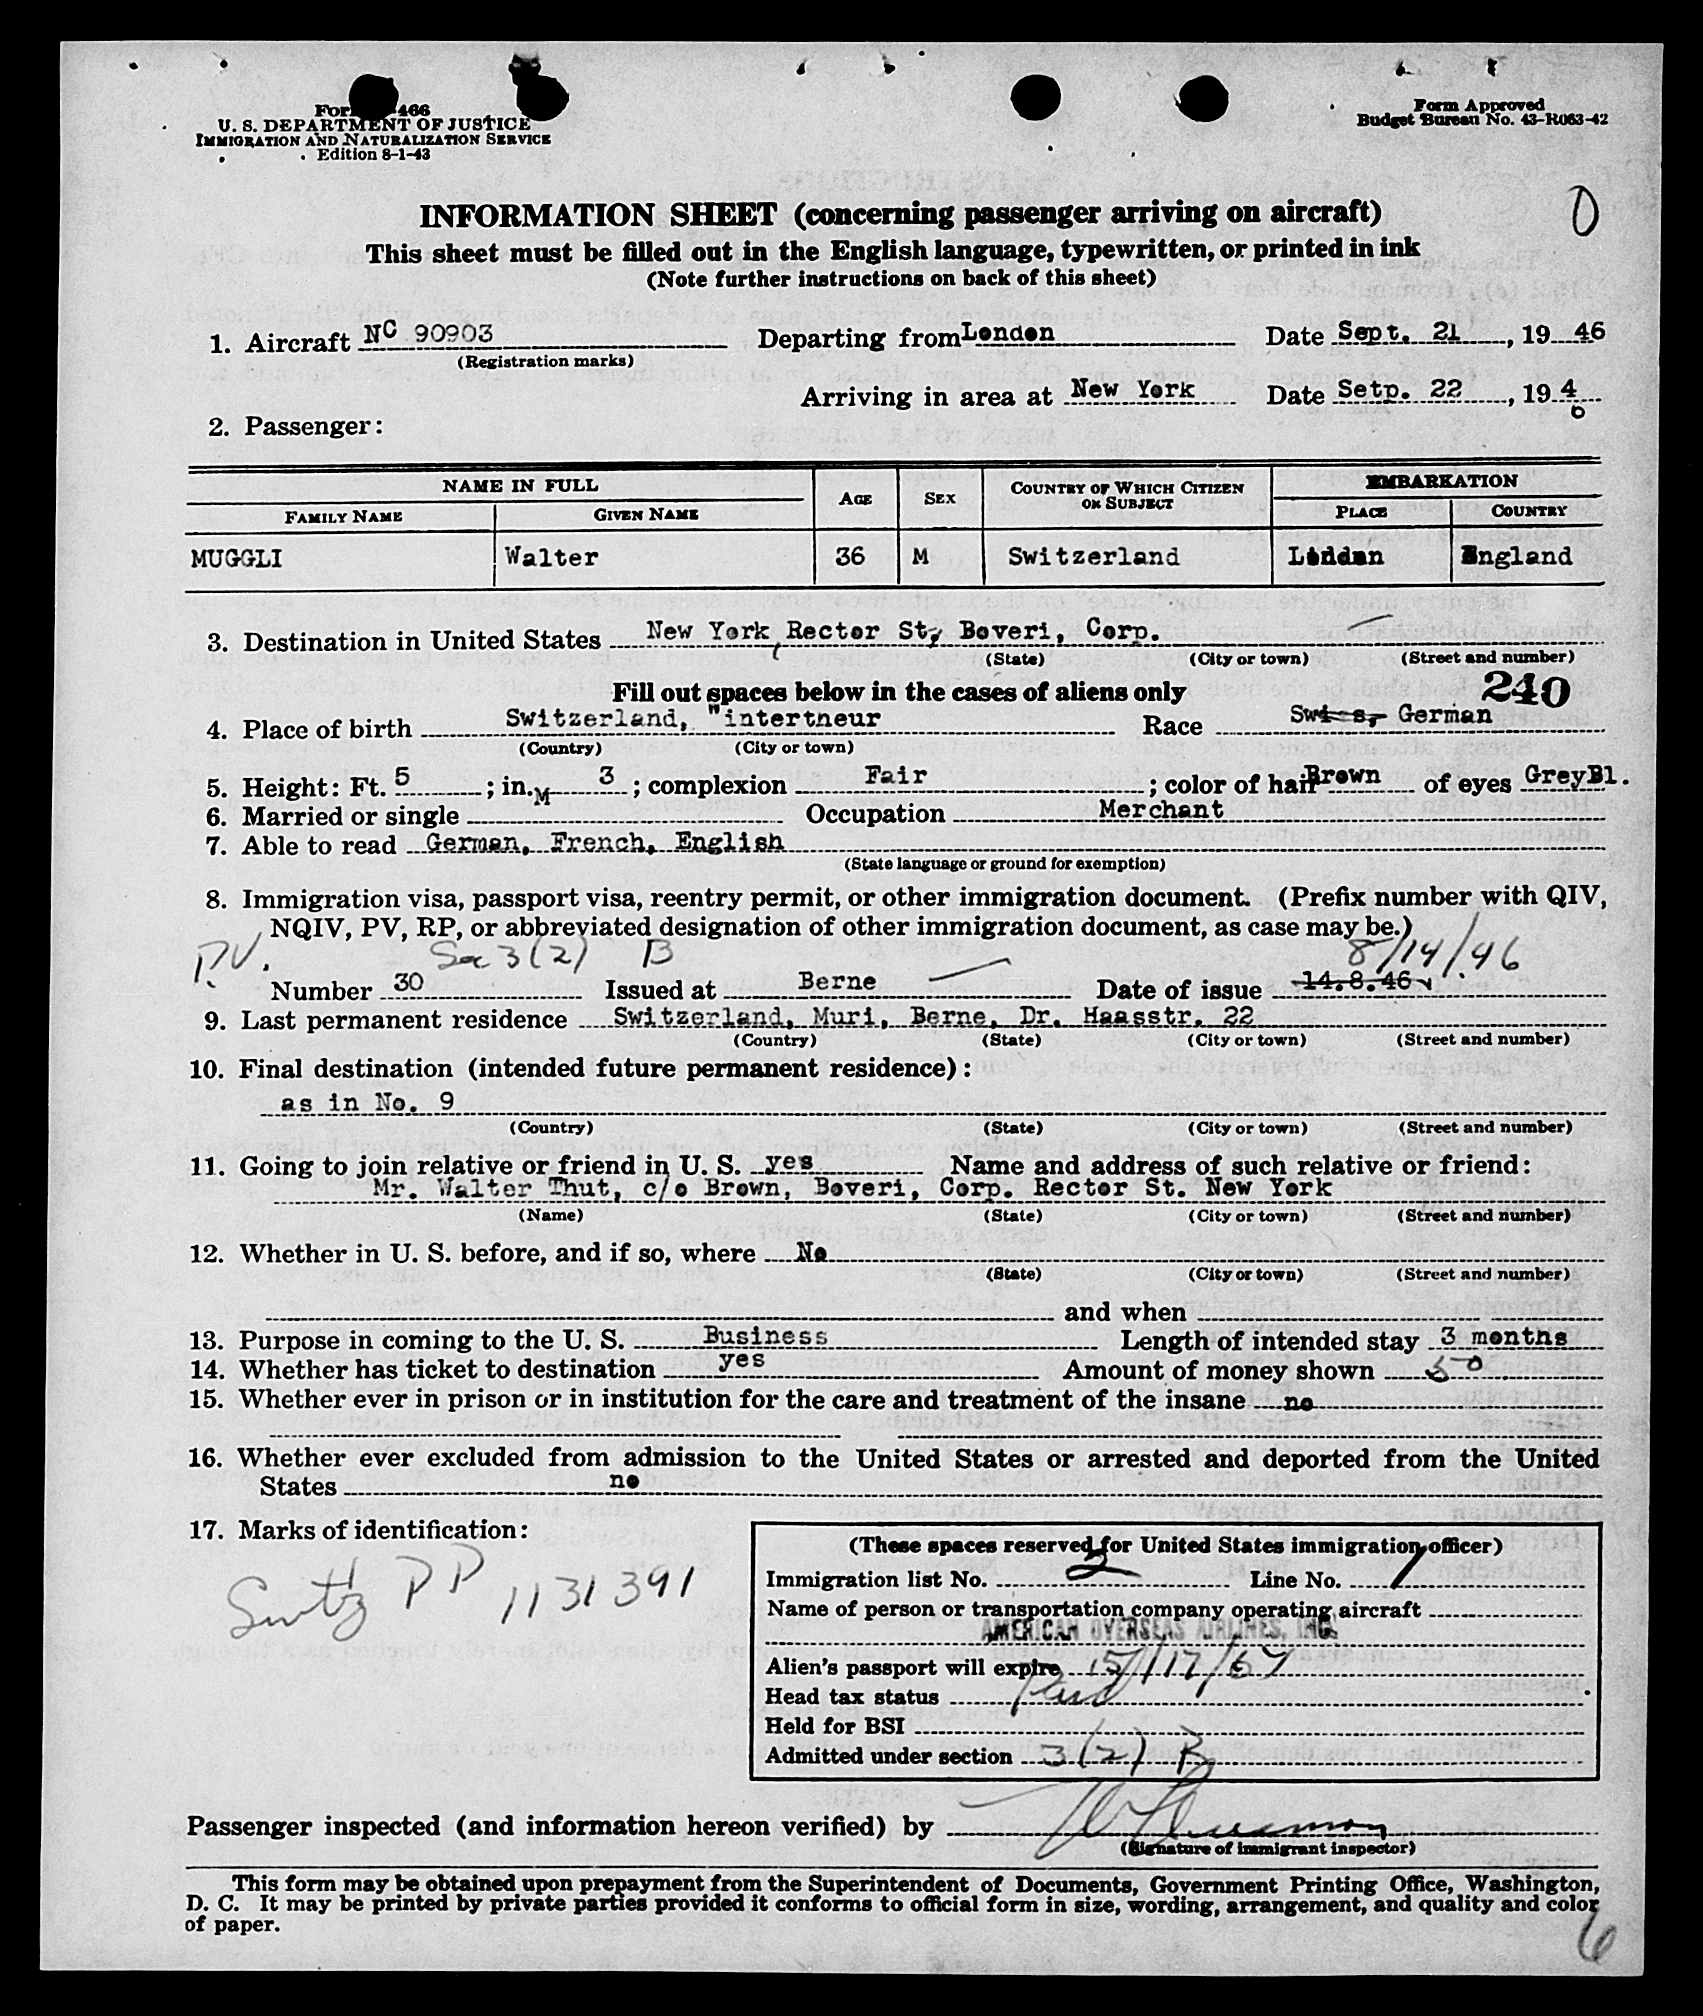 466
U. S. DEPARTMENT OF JUSTICE
IMMIGRATION AND NATURALIZATION SERVICE
Edition 8-1-43
Form Approved
Budget Bureau No. 43-R063-42
INFORMATION SHEET (concerning passenger arriving on aircraft)
0
This sheet must be filled out in the English language, typewritten, or printed in ink
(Note further instructions on back of this sheet)
1. Aircraft NC 90903 Departing from London Date Sept. 21, 19 46
(Registration marks)
Arriving in area at New York Date Setp. 22, 19 46
2. Passenger:
NAME IN FULL AGE SEX COUNTRY OF WHICH CITIZEN OR SUBJECT EMBARKATION
FAMILY NAME GIVEN NAME PLACE COUNTRY
MUGGLI Walter 36 M Switzerland London England
3. Destination in United States New York, Rector St, Boveri, Corp.
(State) (City or town) (Street and number)
Fill out spaces below in the cases of aliens only 240
4. Place of birth Switzerland, "intertneur Race Swiss, German
(Country) (City or town)
5. Height: Ft. 5; in. 3; complexion Fair; color of hair Brown of eyes GreyBl.
6. Married or single M Occupation Merchant
7. Able to read German, French, English
(State language or ground for exemption)
8. Immigration visa, passport visa, reentry permit, or other immigration document. (Prefix number with QIV,
NQIV, PV, RP, or abbreviated designation of other immigration document, as case may be.)
PV. Sec 3(2) B 8/14/46
Number 30 Issued at Berne Date of issue 14.8.46
9. Last permanent residence Switzerland, Muri, Berne, Dr. Haasstr. 22
(Country) (State) (City or town) (Street and number)
10. Final destination (intended future permanent residence):
as in No. 9
(Country) (State) (City or town) (Street and number)
11. Going to join relative or friend in U. S. yes Name and address of such relative or friend:
Mr. Walter Thut, c/o Brown, Boveri, Corp. Rector St. New York
(Name) (State) (City or town) (Street and number)
12. Whether in U. S. before, and if so, where No
(State) (City or town) (Street and number)
and when
13. Purpose in coming to the U. S. Business Length of intended stay 3 months
14. Whether has ticket to destination yes Amount of money shown 50
15. Whether ever in prison or in institution for the care and treatment of the insane no
16. Whether ever excluded from admission to the United States or arrested and deported from the United
States no
17. Marks of identification:
Switz PP 1131391
(These spaces reserved for United States immigration officer)
Immigration list No. 2 Line No. 1
Name of person or transportation company operating aircraft
AMERICAN OVERSEAS AIRLINES, INC.
Alien's passport will expire
Head tax status Paid
Held for BSI
Admitted under section 3(2) B
Passenger inspected (and information hereon verified) by
(Signature of immigrant inspector)
This form may be obtained upon prepayment from the Superintendent of Documents, Government Printing Office, Washington,
D. C. It may be printed by private parties provided it conforms to official form in size, wording, arrangement, and quality and color
of paper.
6